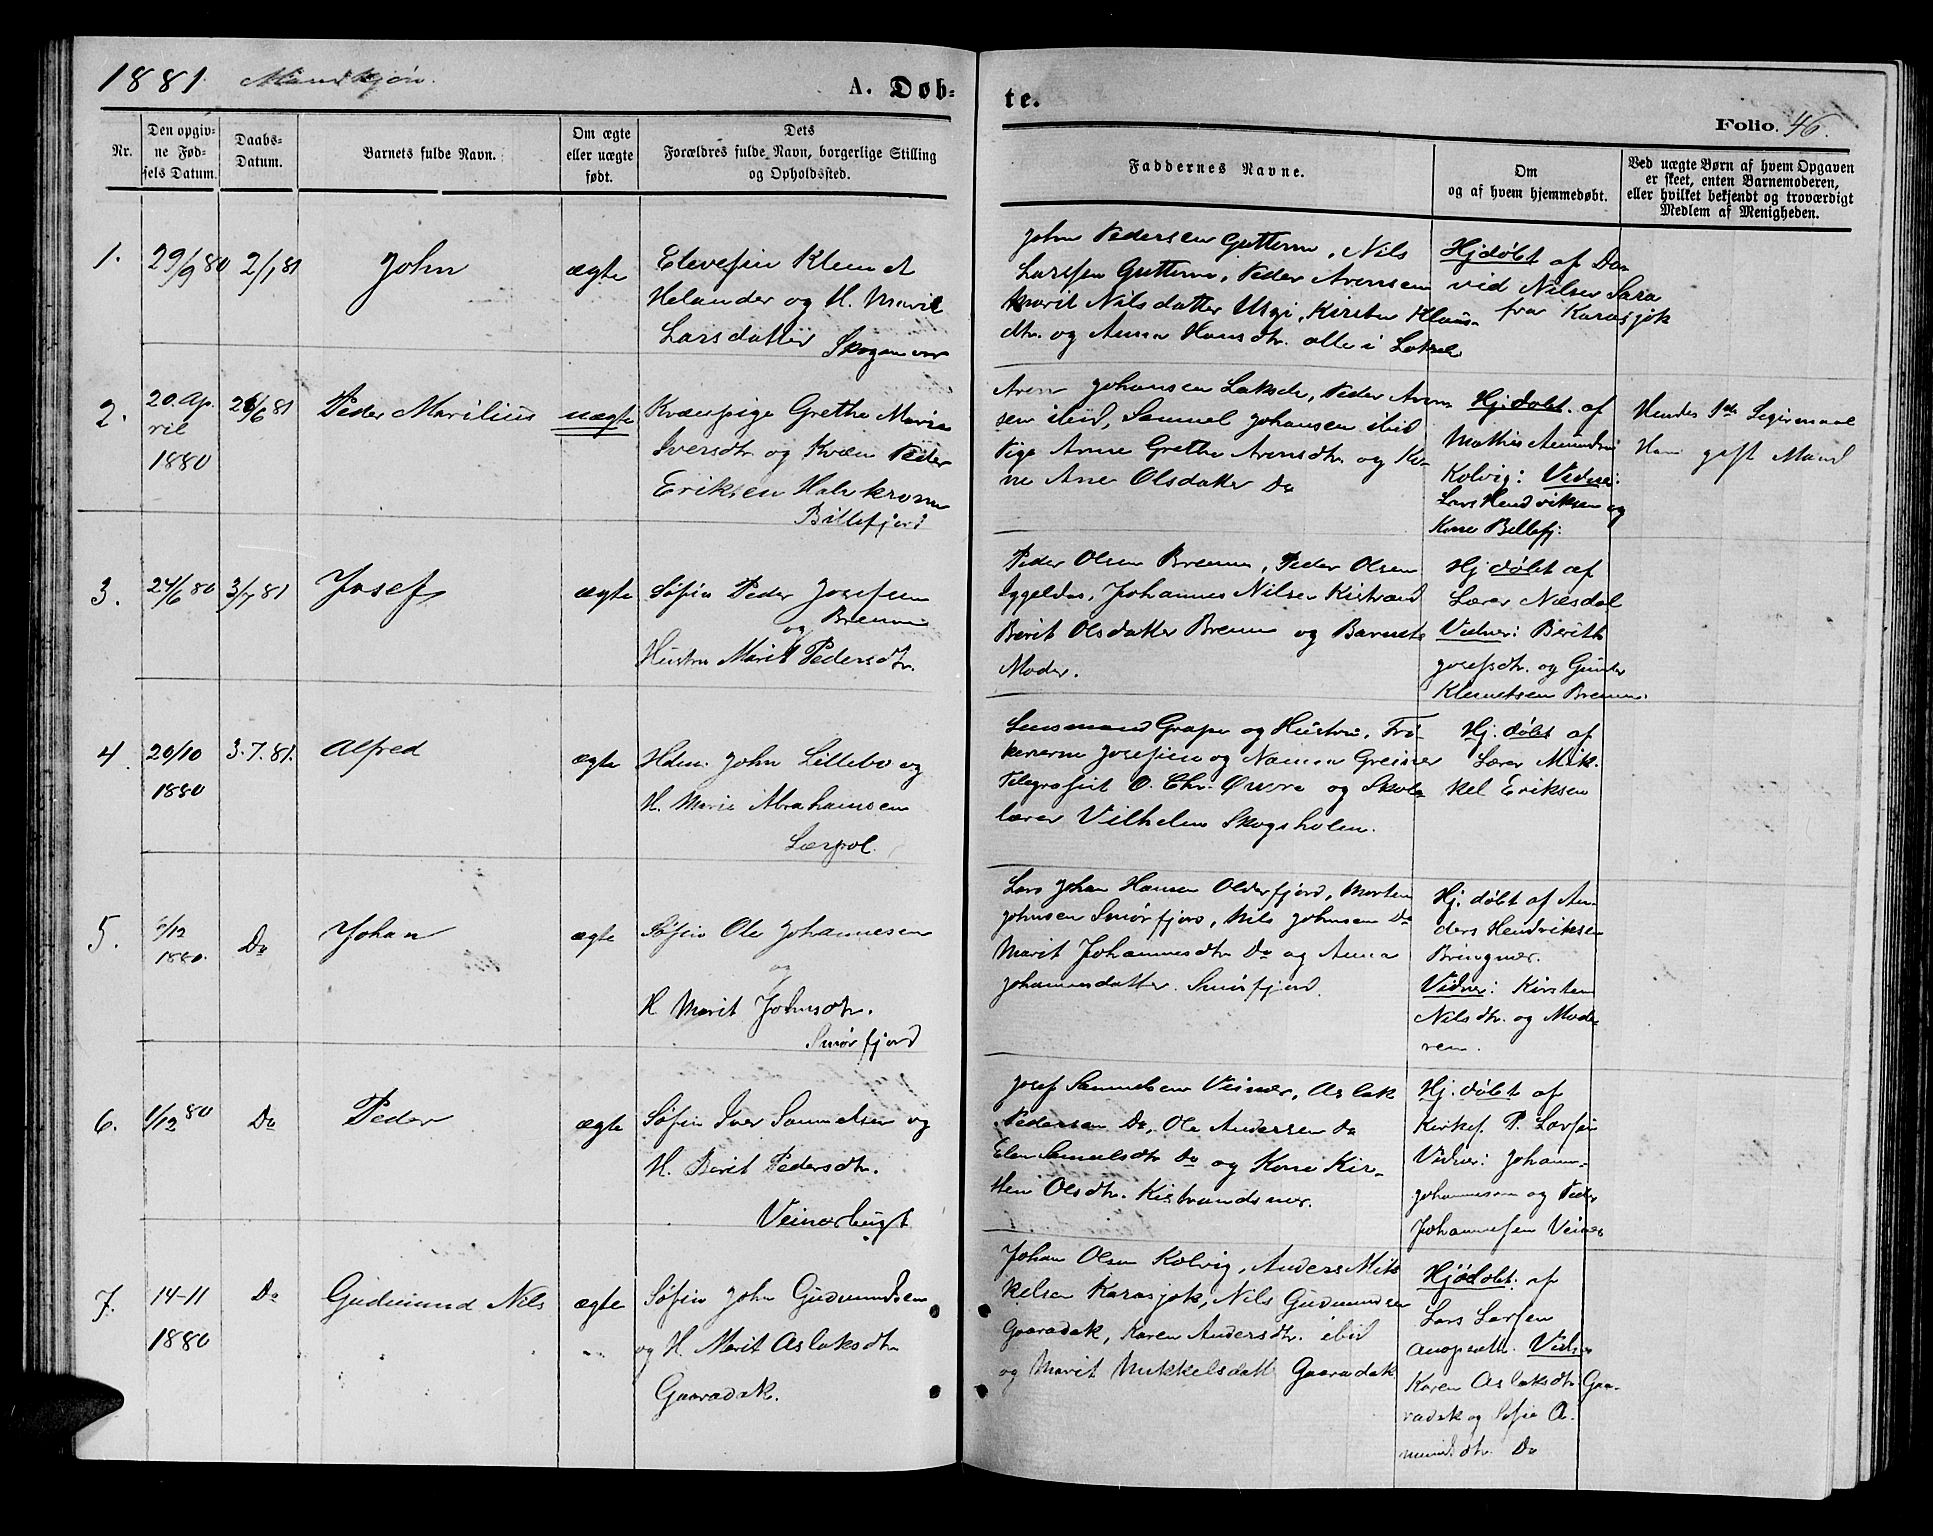 1881. Mandkjøn.
A. Døb-
te.
Folio. 46.
Nr.
Den opgiv-
ne Fød-
sels Datum.
Daabs-
Datum.
Barnets fulde Navn.
Om ægte
eller uægte
født.
Dets
Forældres fulde Navn, borgerlige Stilling
og Opholdssted.
Faddernes Navne.
Om
og af hvem hjemmedøbt.
Ved uægte Børn af hvem Opgaven
er skeet, enten Barnemoderen,
eller hvilket bekjendt og troværdigt
Medlem af Menigheden.
1.
29/9 80
2/1 81
John
ægte
Elvefin Klemet
Helander og H. Marit
Larsdatter
Skoganvar
John Pedersen Gutterm, Nils
Larssen Gutterm, Peder Arensen
Marit Nilsdatter Usgi, Kirsten Klaus-
dtr. og Anna Hansdtr. alle i Laksel
Hjdøbt af Da-
vid Nilsen Sara
fra Karasjok
2.
20. Ap-
ril
1880
26/6 81
Peder Marilius
uægte
Kvænpige Grethe Maria
Iversdtr og Kvæn Peder
Eriksen Halvkrone
Billefjord
Aren Johansen Lakselv, Peder Aren-
sen ibid, Samuel Johansen ibid
Pige Anne Grethe Arensdtr og Ko-
ne Ane Olsdatter Do
Hj. døbt. af
Mathis Amundsen
Kolvig: Vidner:
Lars Hendriksen og
Kone Billefj.
Hendes 1ste Leiermaal
Han gift Mand
3.
24/6 80
3/7 81
Josef
ægte
Søfin Peder Josefsen
og Brenna
Hustru Marit Pedersdtr.
Peder Olsen Brenna, Peder Olsen
Iggeldas, Johannes Nilsen Kistrand
Berit Olsdatter Brenna og Barnets
Moder.
Hj døbt af
Lærer Næsdal
Vidner: Berith
Josefsdtr. og Gunter
Klemetsen Brenna.
4.
20/10
1880
3.7.81.
Alfred
ægte
Hdm. John Lillebo og
H. Marie Abrahamsen
Lærpol.
Lensmand Grape og Hustru, Frø-
kenerne Josefine og Nanna Greiner
Telegrafist O. Chr. Øwre og Skole-
lærer Vilhelm Skogsholm.
Hj. døbt af
Lærer Mik-
kel Eriksen
5.
/12
1880.
Do
Johan
ægte
Søfin Ole Johannesen
og
H Marit Johnsdtr.
Smørfjord
Lars Johan Hansen Olderfjord, Morten
Johnsen Smørfjord, Nils Johnsen Do
Marit Johannesdtr Do og Anna
Johannesdatter Smørfjord.
Hj. døbt af An-
ders Hendriksen
Bringnæs.
Vidner: Kirsten
Nilsdtr. og Mode-
ren.
6.
1/12 80
Do
Peder
ægte
Søfin Iver Samuelsen og
H. Berit Pedersdtr.
Veinesbugt
Josef Samuelsen Veines, Aslak
Pedersen Do, Ole Andersen Do
Elen Samuelsdtr Do og Kone Kir-
sten Olsdtr. Kistrandsnes.
Hj. døbt af
Kirkes. P. Larsen
Vidner: Johan-
Johannesen og Peder
Johannesen Veines
7.
14-11
1880
Do
Gudmund Nils
ægte
Søfin John Gudmundsen
og H. Marit Aslaksdtr
Gaaradak.
Johan Olsen Kolvig, Anders Mik-
kelsen Karasjok, Nils Gudmundsen
Gaaradak, Karen Andersdtr. ibid
og Marit Mikkelsdatt Gaaradak
Hjdøbt. af
Lars Larsen
Vidner
Karen Aslaksdtr. Gaa-
radak og Sofie A-
mundsdtr. Do